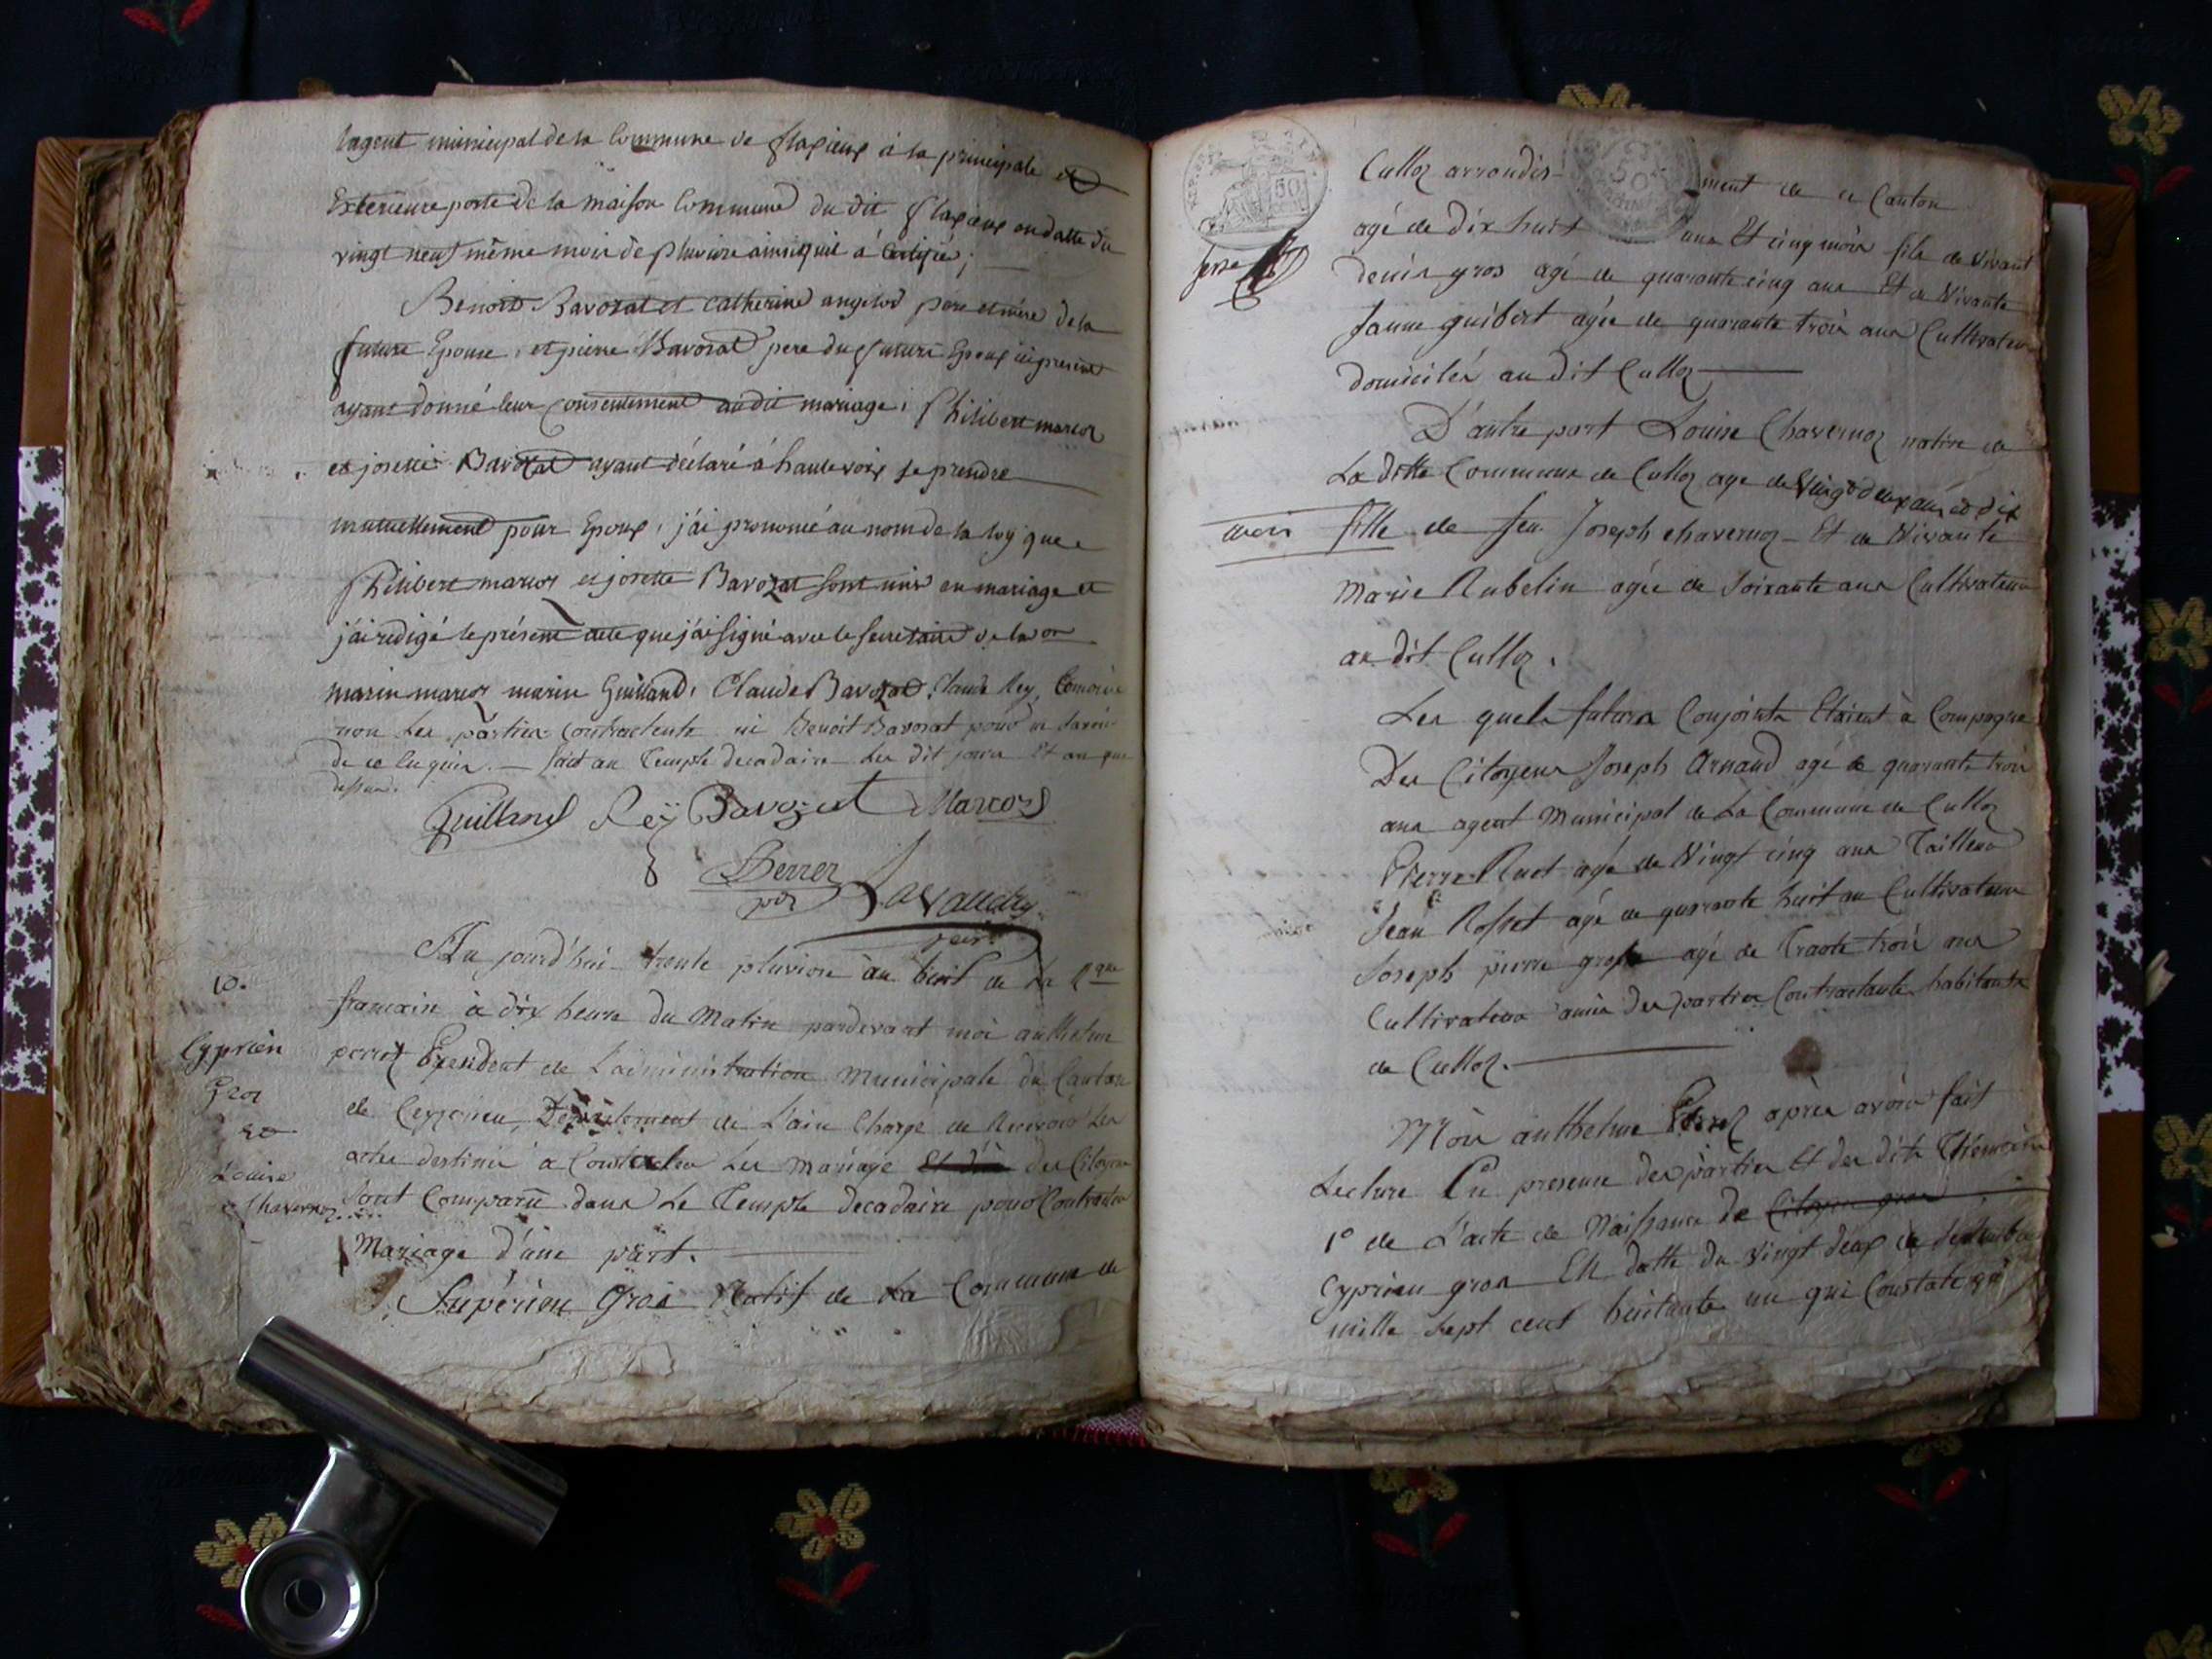 l'agent municipal de la Commune de flaxieux à la principale et
Exterieure porte de la maison Commune du dit flaxieux en datte du
vingt neuf même mois de pluviose ainsi qu'il à Certifié ;
Benoit Bavozat et Catherine angelod pere et mère de la
future Epouse, et pierre Bavozat pere du futur Epoux ici present
ayant donné leur Consentement au dit mariage, Philibert marcoz
et josette Bavozat ayant déclaré à haute voix se prendre
mutuellement pour Epoux, j'ai prononcé au nom de la loy que
Philibert marcoz et josette Bavozat sont unis en mariage et
j'ai redigé le présent acte que j'ai signé avec le secretaire de la
marin marcoz marin Guilland, Claude Bavozat, Claude Rey,
non Les parties contractente ni Benoit Bavozat pour ne savoir
de ce Enquis. — fait au Temple decadaire Les dit jour Et an que
dessus.
Guilland Reÿ Bavozat Marcoz
Perrez
pdt
Lavaudry
secr
10.
Au jourd'hui trente pluviose an huit de La Rque
francaise à dix heure du Matin pardevant moi anthelme
Cyprien
perrez President de L'administration Municipale du Canton
gros
de Ceyzerieu, Departement de L'ain Charge de Recevoir Les
et
actes destinés a Constater Les Mariage Et des Citoyens
Louise
sont Comparu dans Le Temple decadaire pour Contracter
Chavernoz
Mariage d'une part.
Supérien Gros Natif de La Commune de
50
Culloz arrondis- ment de ce Canton
agé de dix huit ans Et cinq mois fils de vivant
denis gros agé de quarante cinq ans Et de Vivante
Janne guibert agée de quarante trois ans Cultivateur
domiciliés au dit Culloz
D'autre part Louise Chavernoz native de
La ditte Commune de Culloz age de Vingt deux ans et dix
mois fille de feu Joseph chavernoz Et de Vivante
Marie Rubelin agée de Soixante ans Cultivateur
au dit Culloz.
Les quels futurs Conjoints Etoient à Compagne
Des Citoyens Joseph Arnaud agé de quarante trois
ans agent Municipal de La Commune de Culloz
Pierre Ruet agé de Vingt cinq ans Tailleur
Jean Rosset agé de quarante huit an Cultivateur
Joseph pierre gros agé de Trante trois ans
Cultivateur amis des parties Contractante habitants
de Culloz.
Moi anthelme Perrez après avoir fait
Lecture En presense des parties Et des dits Thémoins
1° de L'acte de Naissance de Citoyen gros
Cyprien gros En datte du vingt deux de septembre
mille sept cent huitante un qui Constate qu'